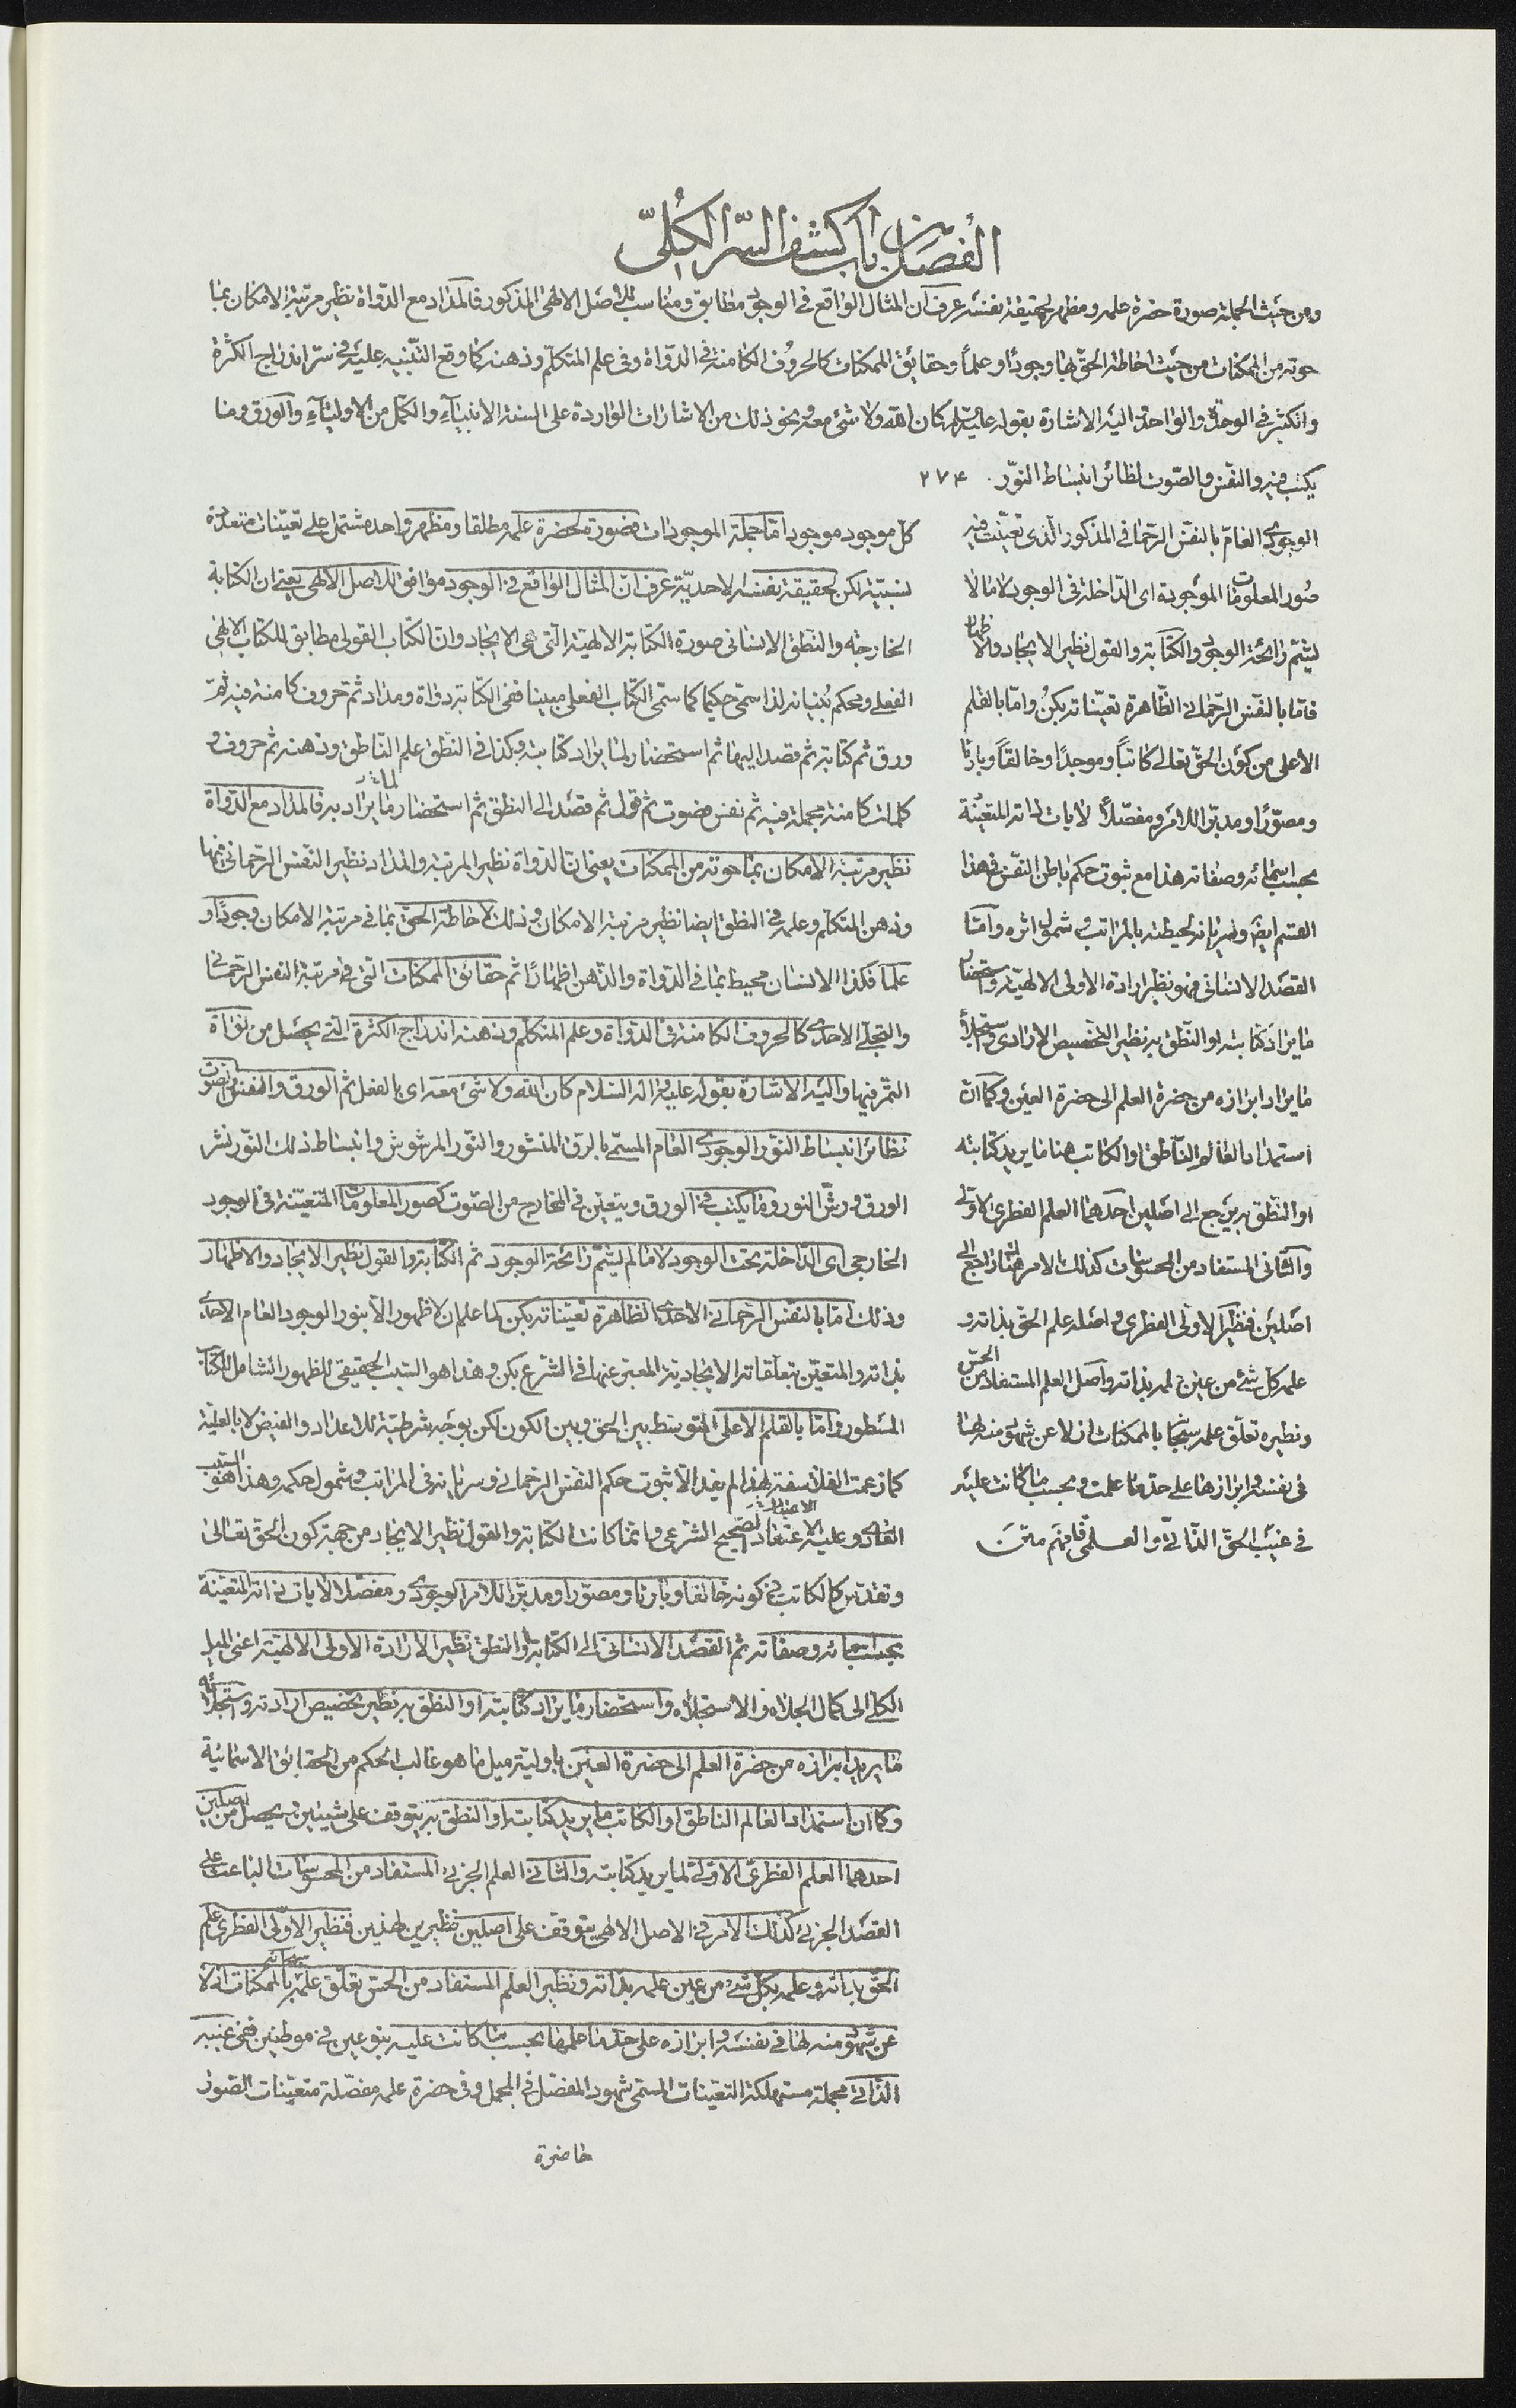 الفصل من باب كشف السر الكلّى
ومن حيث الجملة صورة حضرة علمه ومظهر لحقيقة نفسه عرف ان المثال الواقع فى الوجود مطابق ومناسب للاصل الالهى المذكور فالمداد مع الدواة نظير مرتبة الامكان بما
حوته من الممكنات من حيث احاطة الحق بها وجودًا وعلمًا وحقايق الممكنات كالحروف الكامنة فى الدواة وفى علم المتكلم وذهنه كما وقع التنبيه عليه فى سرّ اندراج الكثرة
والتكثر فى الوحدة والواحد واليه الاشارة بقوله عليه السلام كان الله ولا شئ معه ونحو ذلك من الاشارات الواردة على السنة الانبيآء والكمّل من الاوليآء والورق وما
يكتب فيه والنفس والصوت نظائر انبساط النوّر . ٢٧۴
الوجودى العامّ بالنفس الرحمانى المذكور الّذى تعيّنت فيه
صُور المعلومات الموجودة اى الداخلة فى الوجود لا ما لا
يشمّ رائحة الوجود والكتابة والقول نظير الايجاد والاظهار
فامّا بالنفس الرحمانى الظاهرة تعيّناته بكن وامّا بالقلم
الاعلى من كون الحقّ تعالى كاتباً وموجدًا وخالقاً وبارئا
ومصوّرًا ومدبّرا للامر ومفصّلاً لايات ذاته المتعيّنة
بحسب اسمائه وصفاته هذا مع ثبوت حكم باطن النفس فى هذا
القسم ايضًا وسريانه لحيطته بالمراتب وشمول اثره وامّا
القصد الانسانى فهو نظير ارادة الاولى الالهيّة واستحضار
ما يراد كتابته او النطق به نظير التخصيص الارادى واستجلاء
ما يراد ابرازه من حضرة العلم الى حضرة العين وكما ان
استمداد العالم الناطق او الكاتب هنا ما يريد كتابته
او النطق به يرجع الى اصلين احدهما العلم الفطرى الاوّلى
والثانى المستفاد من المحسوسات كذلك الامر هناك راجع الى
اصلين فنظير الاوّلى الفطرى واصله علم الحق بذاته و
علمه كل شئ من عين علمه بذاته واصل العلم المستفاد من الحسّ
ونظيره تعلّق علمه سبحانه بالممكنات ازلا عن شهود منه لها
فى نفسه وابرازها على حدّ ما علمت وبحسب ما كانت عليه
فى غيب الحقّ الذاتىّ والعلمى فافهم متن
كلّ موجود موجود امّا جملة الموجودات فصورة لحضرة علمه مطلقا ومظهر واحد مشتمل على تعيّنات متعددة
نسبيّة لكن لحقيقة نفسه الاحديّة عرف انّ المثال الواقع فى الوجود موافق للاصل الالهى يعنى ان الكتابة
الخارجيّة والنطق الانسانى صورة الكتابة الالهيّة الّتى هى الايجاد وان الكتاب القولى مطابق للكتاب الالهى
الفعلى ومحكم بنيانه لذا سمّى حكيما كما سمّى الكتاب الفعلى مبينا ففى الكتابة دواة ومداد ثم حروف كامنة فيه ثمّ
ورق ثم كتابة ثم قصد اليها ثم استحضار لما يراد كتابته وكذا فى النطق علم الناطق وذهنه ثم حروف و
كلمات كامنة مجملة فيه ثم نفس وصوت ثم قول ثم قصد الى النطق ثم استحضار ما يراد به فالمداد مع الدواة
نظير مرتبة الامكان بما حوته من الممكنات يعنى ان الدواة نظير المرتبة والمداد نظير النفس الرحمانى فيها
وذهن المتكلم وعلمه فى النطق ايضا نظير مرتبة الامكان وذلك لاحاطة الحق بما فى مرتبة الامكان وجودًا و
علمًا فكذا الانسان محيط بما فى الدواة والذهن اظهارًا ثم حقائق الممكنات الّتى فى مرتبة النفس الرحمانى
والتجلّى الاحدى كالحروف الكامنة فى الدواة وعلم المتكلم وذهنه اندراج الكثرة الّتى يحصل من نواة
التمر فيها واليه الاشارة بقوله عليه وآله السلام كان الله ولا شئ معه اى بالفعل ثم الورق والنفس والصوت
نظائر انبساط النوّر الوجودى العام المسمّى بالرق المنشور والنوّر المرشوش وانبساط ذلك النوّر نشر
الورق ورشّ النور وما يكتب فى الورق ويتعيّن فى المخارج من الصّوت كصور المعلومات المتعيّنة فى الوجود
الخارجى اى الداخلة تحت الوجود لا ما لم يشمّ رائحة الوجود ثم الكتابة والقول نظير الايجاد والاظهار
وذلك امّا بالنفس الرحمانى الاحدى الظاهرة تعيّناته بكن لما علم ان لا ظهور الّا بنور الوجود العام الاحدى
بذاته والمتعيّن بتعلّقاته الايجادية المعبّر عنها فى الشرع بكن وهذا هو السبب الحقيقى للظهور الشامل للكتاب
المسطور وامّا بالقلم الاعلى المتوسط بين الحق وبين الكون لكن بوجه شرطيّة للاعداد والفيض لا بالعليّة
كما زعمت الفلاسفة لهذا لم يفد الّا ثبوت حكم النفس الرحمانى وسريانه فى المراتب وشمول حكمه وهذا هو السبب
العادى وعليه الاعتقاد الصحيح الشرعى وانما كانت الكتابة والقول نظير الايجاد من جهة كون الحق تعالى
وتقدّس كالكاتب فى كونه خالقا وبارئا ومصوّرا ومدبّرا للامر الوجودى ومفصّلا لايات ذاته المتعيّنة
بحسب اسمائه وصفاته ثم القصد الانسانى الى الكتابة او النطق نظير الارادة الاولى الالهيّة اعنى الميل
الكلى الى كمال الجلاء والاستجلاء واستحضار ما يراد كتابته او النطق به نظير تخصيص ارادته واستجلائه
ما يريد ابرازه من حضرة العلم الى حضرة العين باولية ميل ما هو غالب الحكم من الحقايق الاسمائية
وكما ان استمداد العالم الناطق او الكاتب ما يريد كتابته او النطق به يتوقف على شيئين ويحصل من اصلين
احدهما العلم الفطرى الاوّلى لما يريد كتابته والثانى العلم الجزئى المستفاد من المحسوسات الباعث على
القصد الجزئى كذلك الامر فى الاصل الالهى يتوقف على اصلين نظيرين لهذين فنظير الاوّلى الفطرى علم
الحق بذاته وعلمه بكل شئ من عين علمه بذاته ونظير العلم المستفاد من الحسّ تعلّق علمه بالممكنات ازلا
عن شهود منه لها فى نفسه وابرازه على حدّ ما علمها بحسب ما كانت عليه بنوعين فى موطنين ففى غيبه
الذاتى مجملة مستهلكة التعيّنات المسمّى شهود المفصّل فى المجمل وفى حضرة علمه مفصّلة متعيّنات الصور
حاضرة